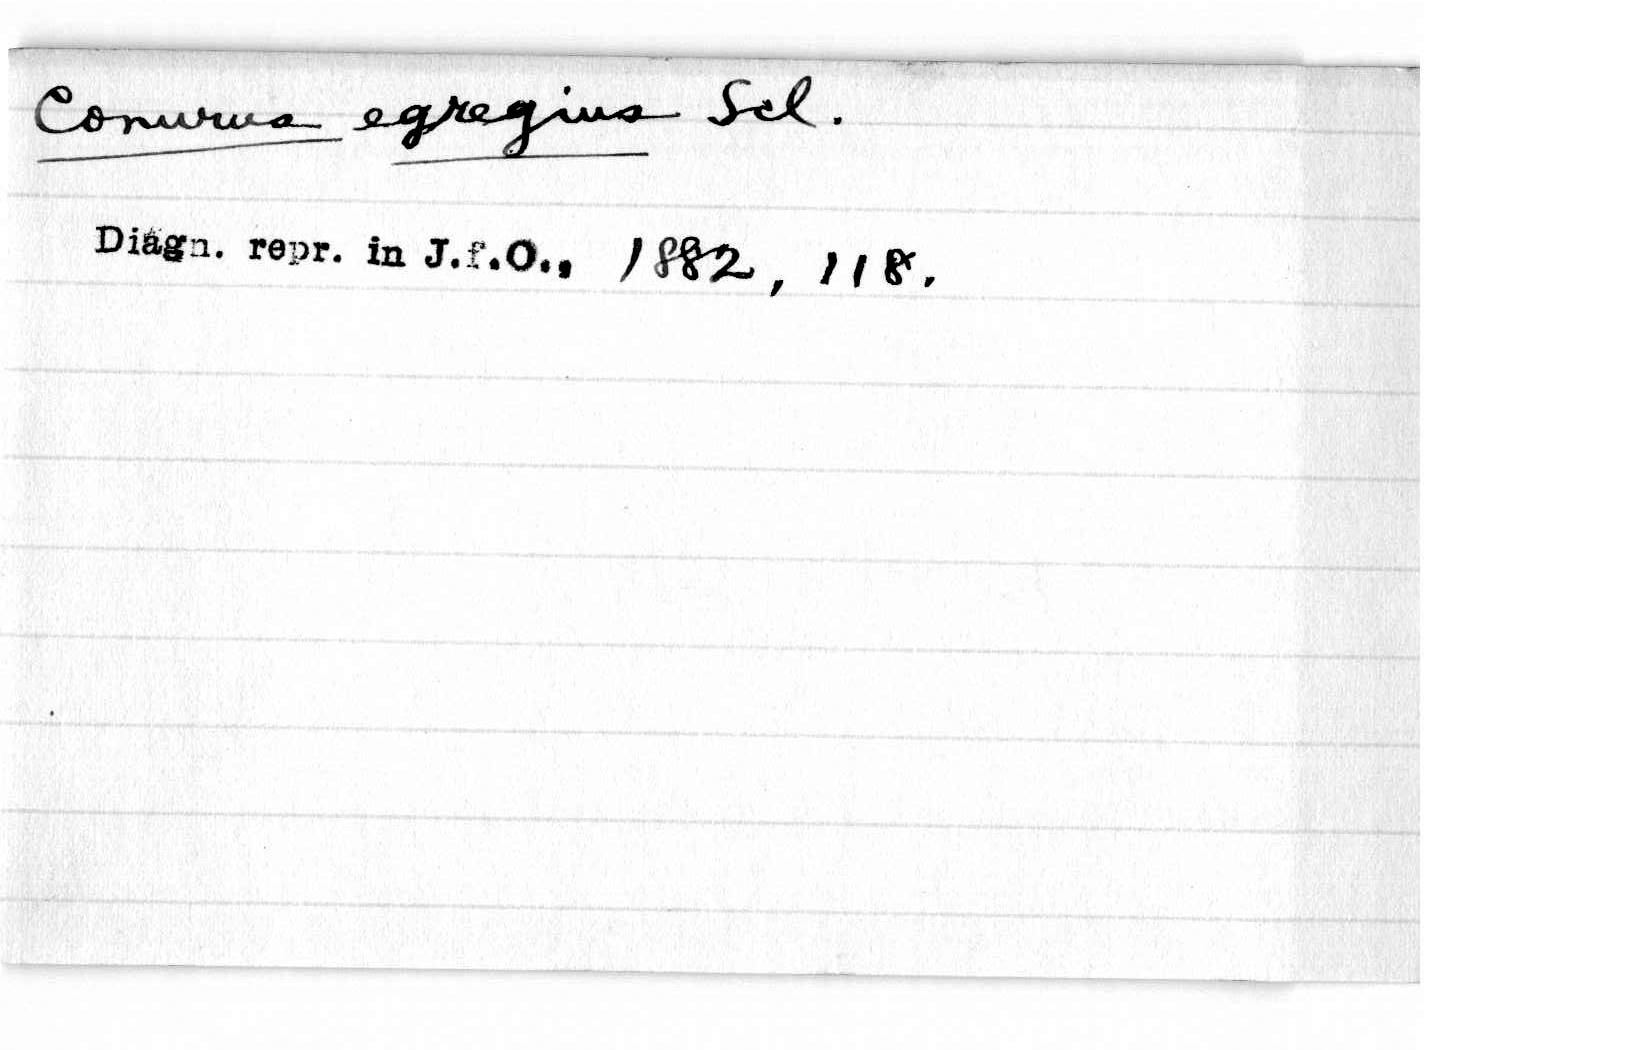 Conurus egregius Scl.
Diagn. repr. in J.f.O., 1882, 118.